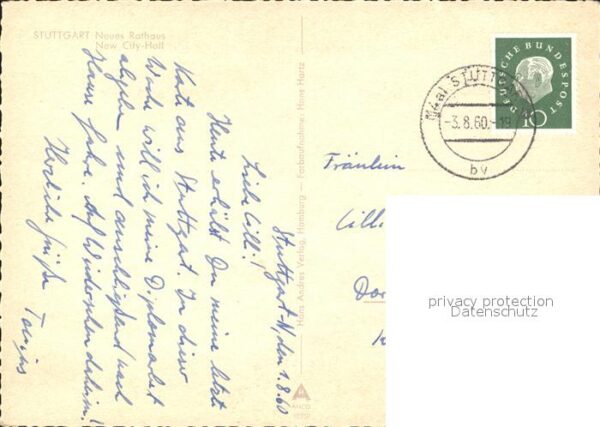 STUTTGART Neues Rathaus
New City-Hall
Stuttgart N, den 1.8.60
Liebe Cilli!
Heute erhältst Du meine letzte
Karte aus Stuttgart. In dieser
Woche will ich meine Diplomarbeit
abgeben und anschließend nach
Hause fahre. Auf Wiedersehen daheim!
Herzliche Grüße
Hans Andres Verlag, Hamburg — Farbaufnahme: Hans Hartz
DEUTSCHE BUNDESPOST
10
STUTTGART
-3.8.60.-19
bv
Fräulein
Cilli
privacy protection
Datenschutz